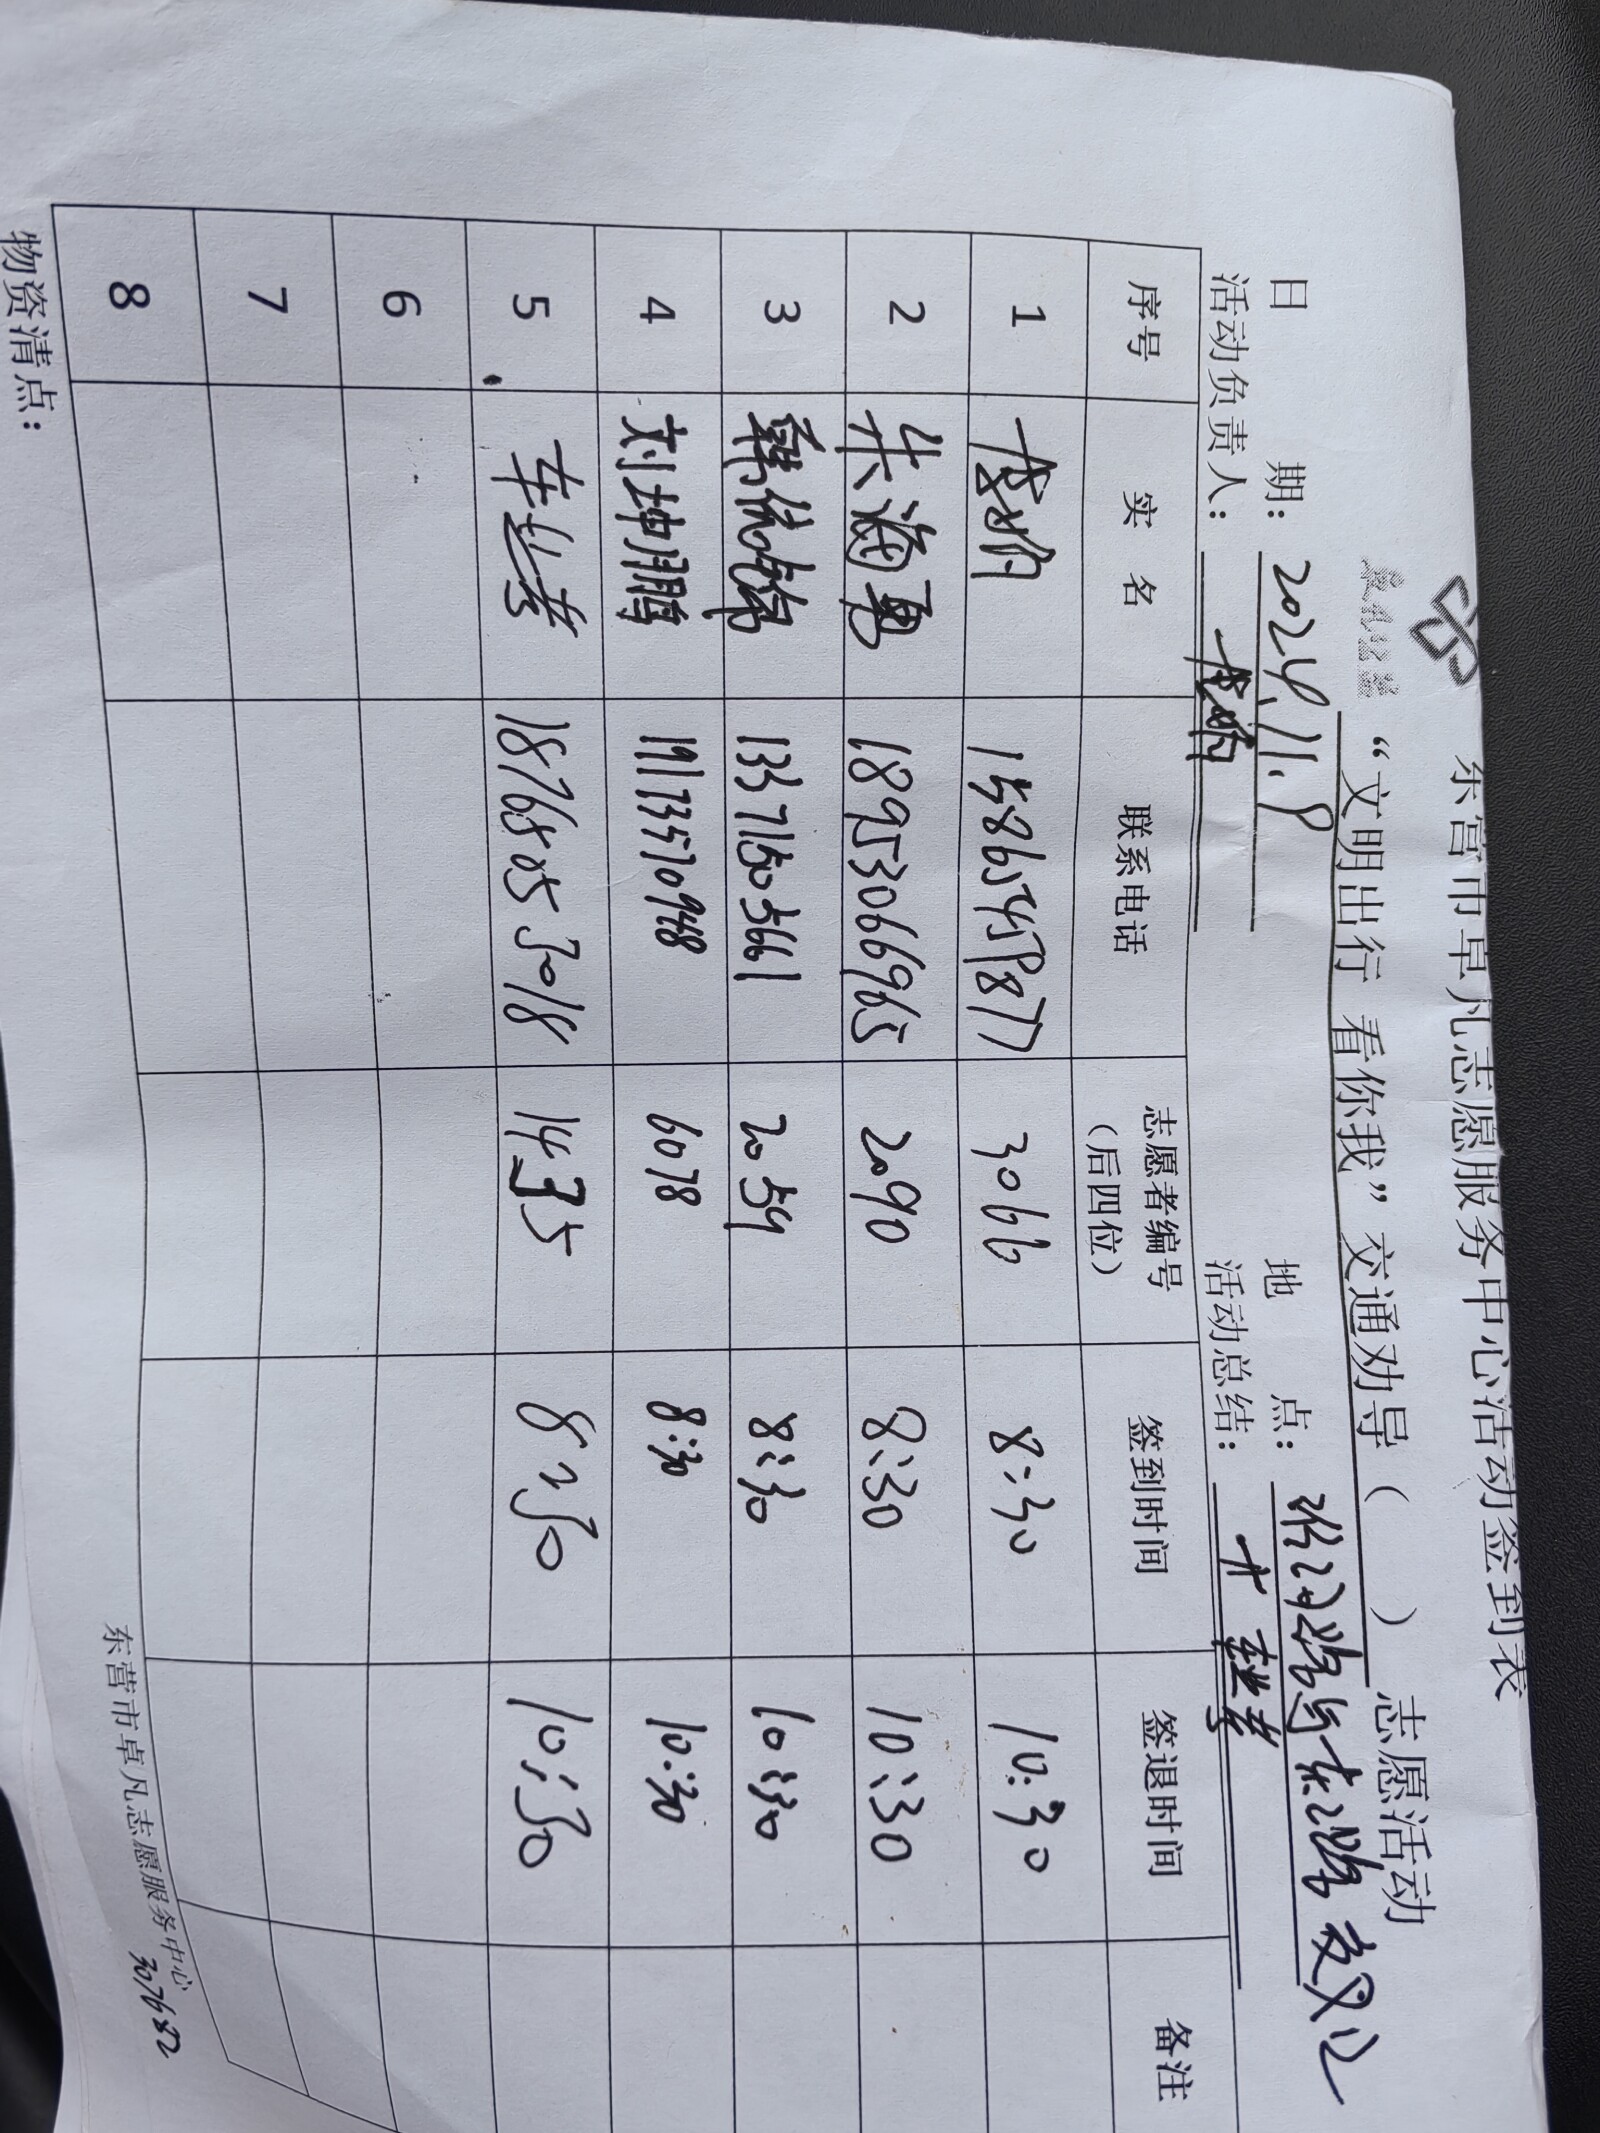 东营市卓凡志愿服务中心活动签到表
“文明出行 看你我” 交通劝导（ ）志愿活动
日 期： 2024.11.9 地 点： 路与东二路交叉口
活动负责人： 活动总结：
序号 实 名 联系电话 志愿者编号（后四位） 签到时间 签退时间 备注
1 3066 8:30 10:30
2 朱海勇 18953066965 2090 8:30 10:30
3 13371503661 2059 8:30 10:30
4 刘坤鹏 19173570948 6078 8:30 10:30
5 18765053018 1435 8:30 10:30
6
7
8
物资清点：
东营市卓凡志愿服务中心